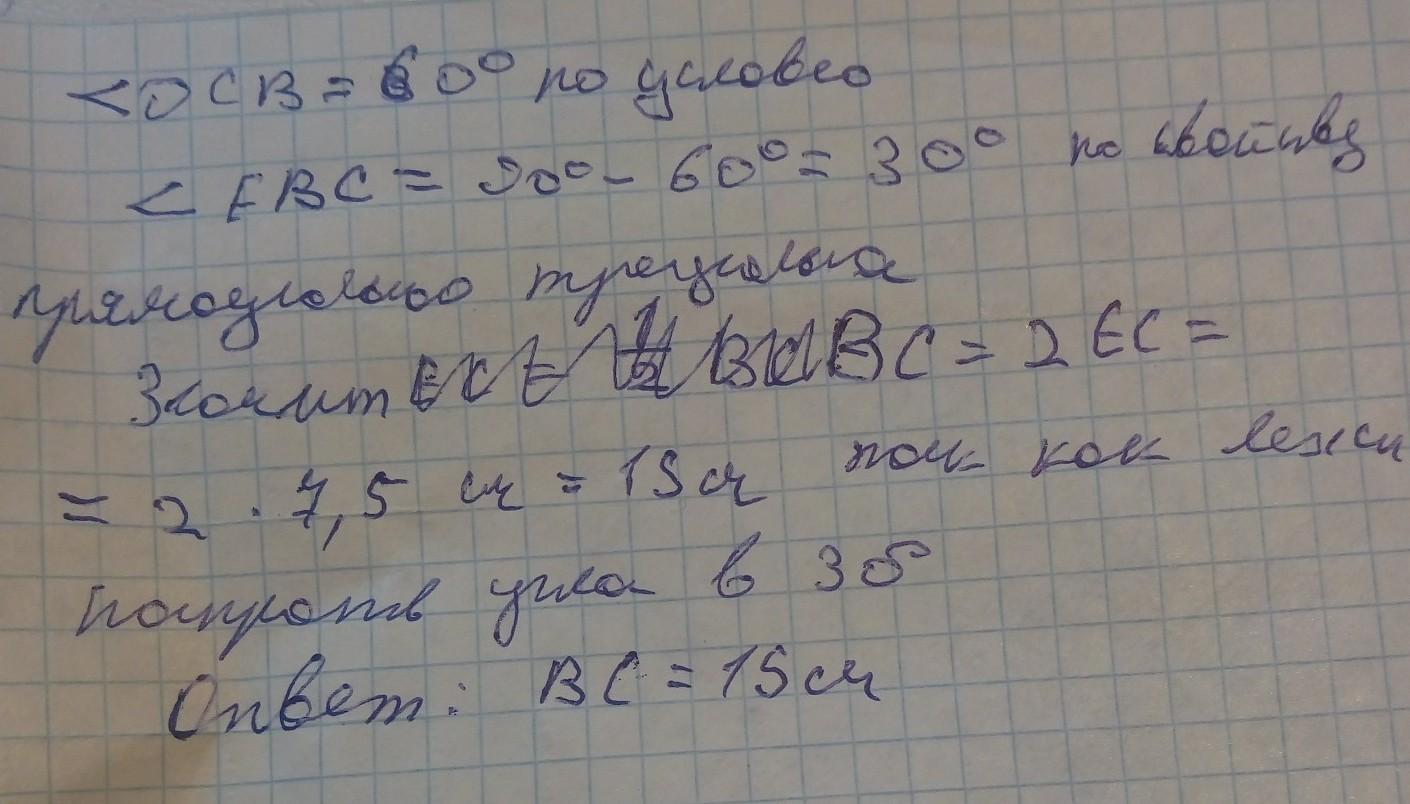 <DCB = 60° по условию
< EBC = 90° - 60° = 30° по свойству
прямоугольного треугольника
Значит BC = 2 EC =
= 2 · 7,5 см = 15 см так как лежи
напротив угла в 30°
Ответ: BC = 15 см